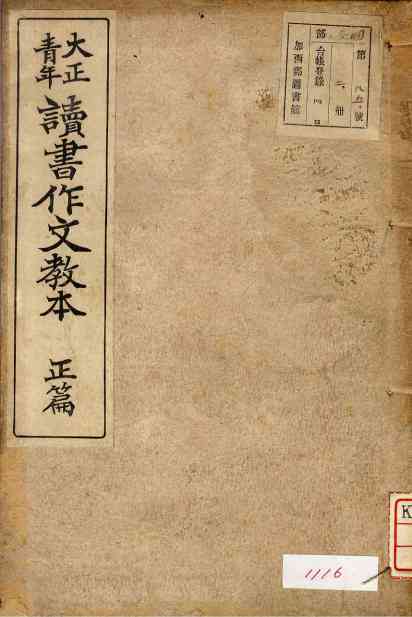 大正
青年
讀書作文教本 正篇
第 八五 號
部
二 冊
台帳登録
加西郡圖書館
1116
K